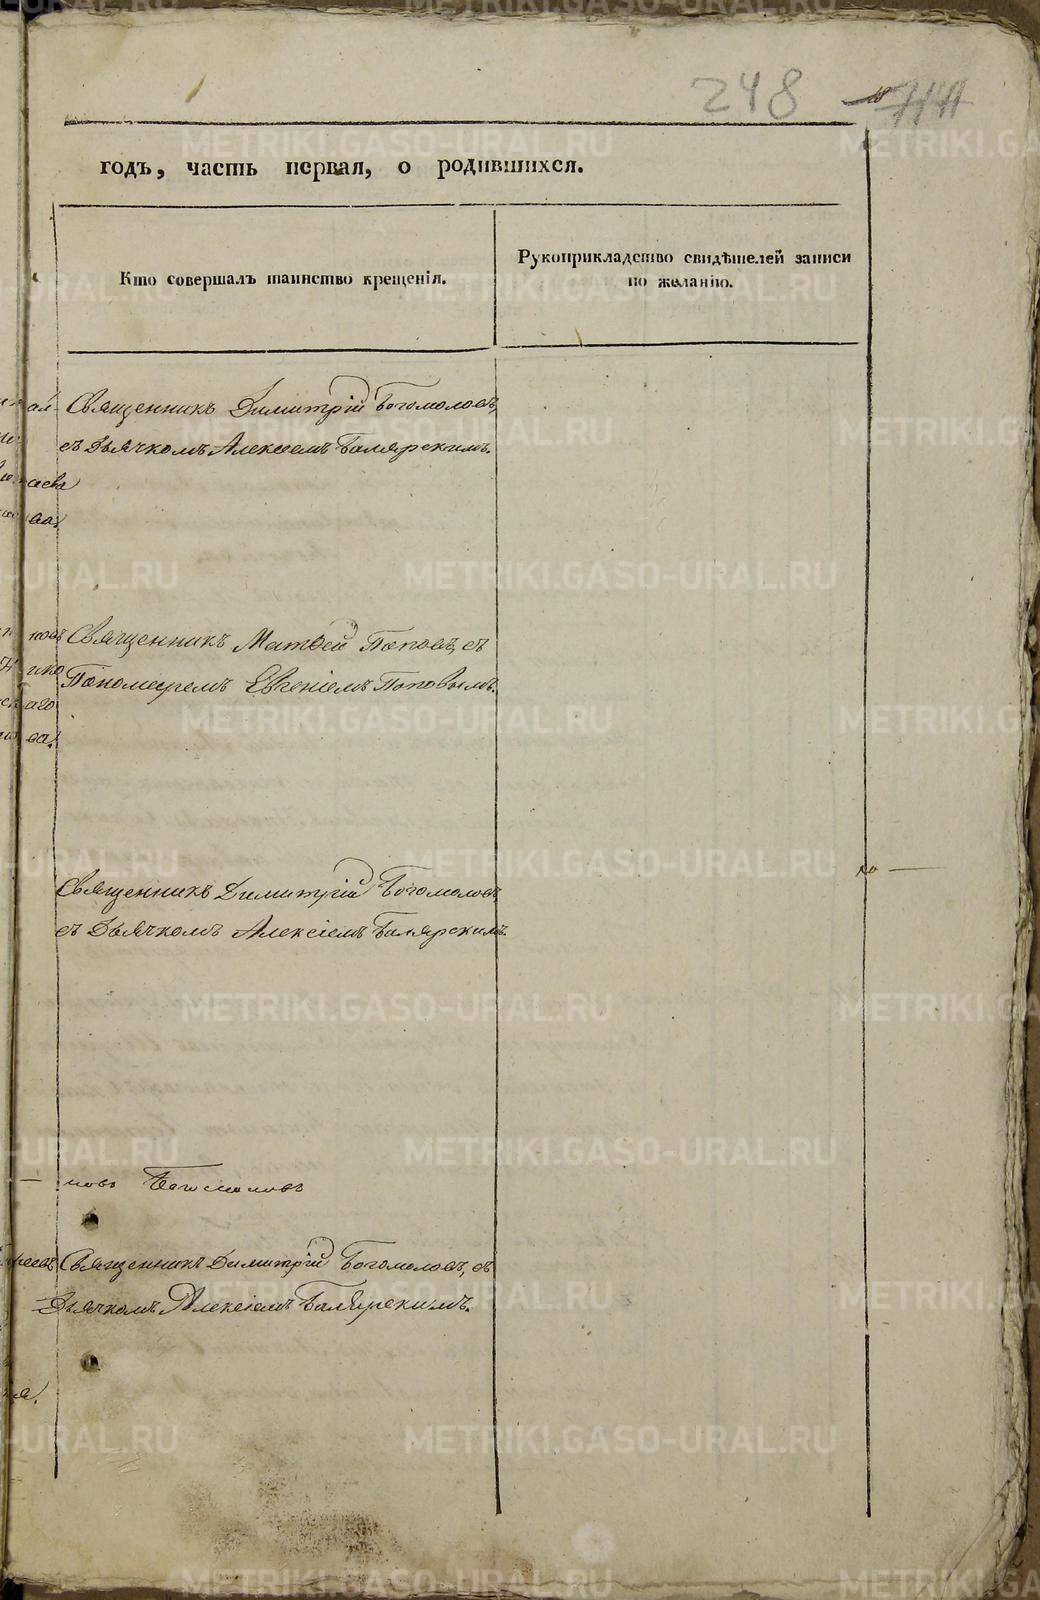 248
годъ, часть первая, о родившихся.
Кто совершалъ таинство крещенія.
Рукоприкладство свидѣтелей записи
по желанію.
Священникъ Димитрій Богомоловъ,
съ Дьячкомъ Алексѣемъ Баляркимъ.
Священникъ Матвей Поповъ, съ
Пономаремъ Евгеніемъ Поповымъ.
Священникъ Димитрій Богомоловъ,
съ Дьячкомъ Алексіемъ Баляркимъ.
Богомоловъ
Священникъ Димитрій Богомоловъ, съ
Дьячкомъ Алексіемъ Баляркимъ.
METRIKI.GASO-URAL.RU